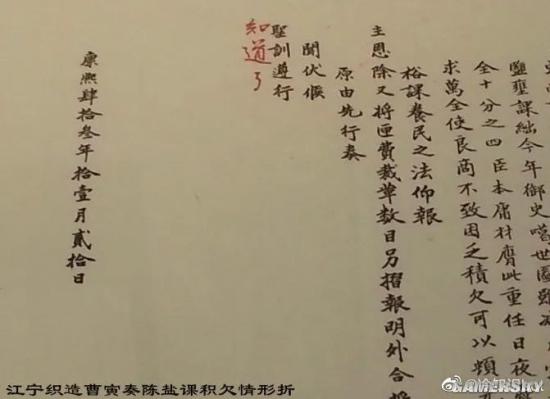 鹽壅課絀今年御史噶世圖雖
全十分之四臣本庸材膺此重任日夜
求萬全使良商不致困乏積欠可以頻
裕課養民之法仰報
主恩除又將匣費裁革數目另摺報明外合
原由先行奏
聞伏候
聖訓遵行
知道了
康熙肆拾叁年拾壹月貳拾日
江宁织造曹寅奏陈盐课积欠情形折
GAMERSKY